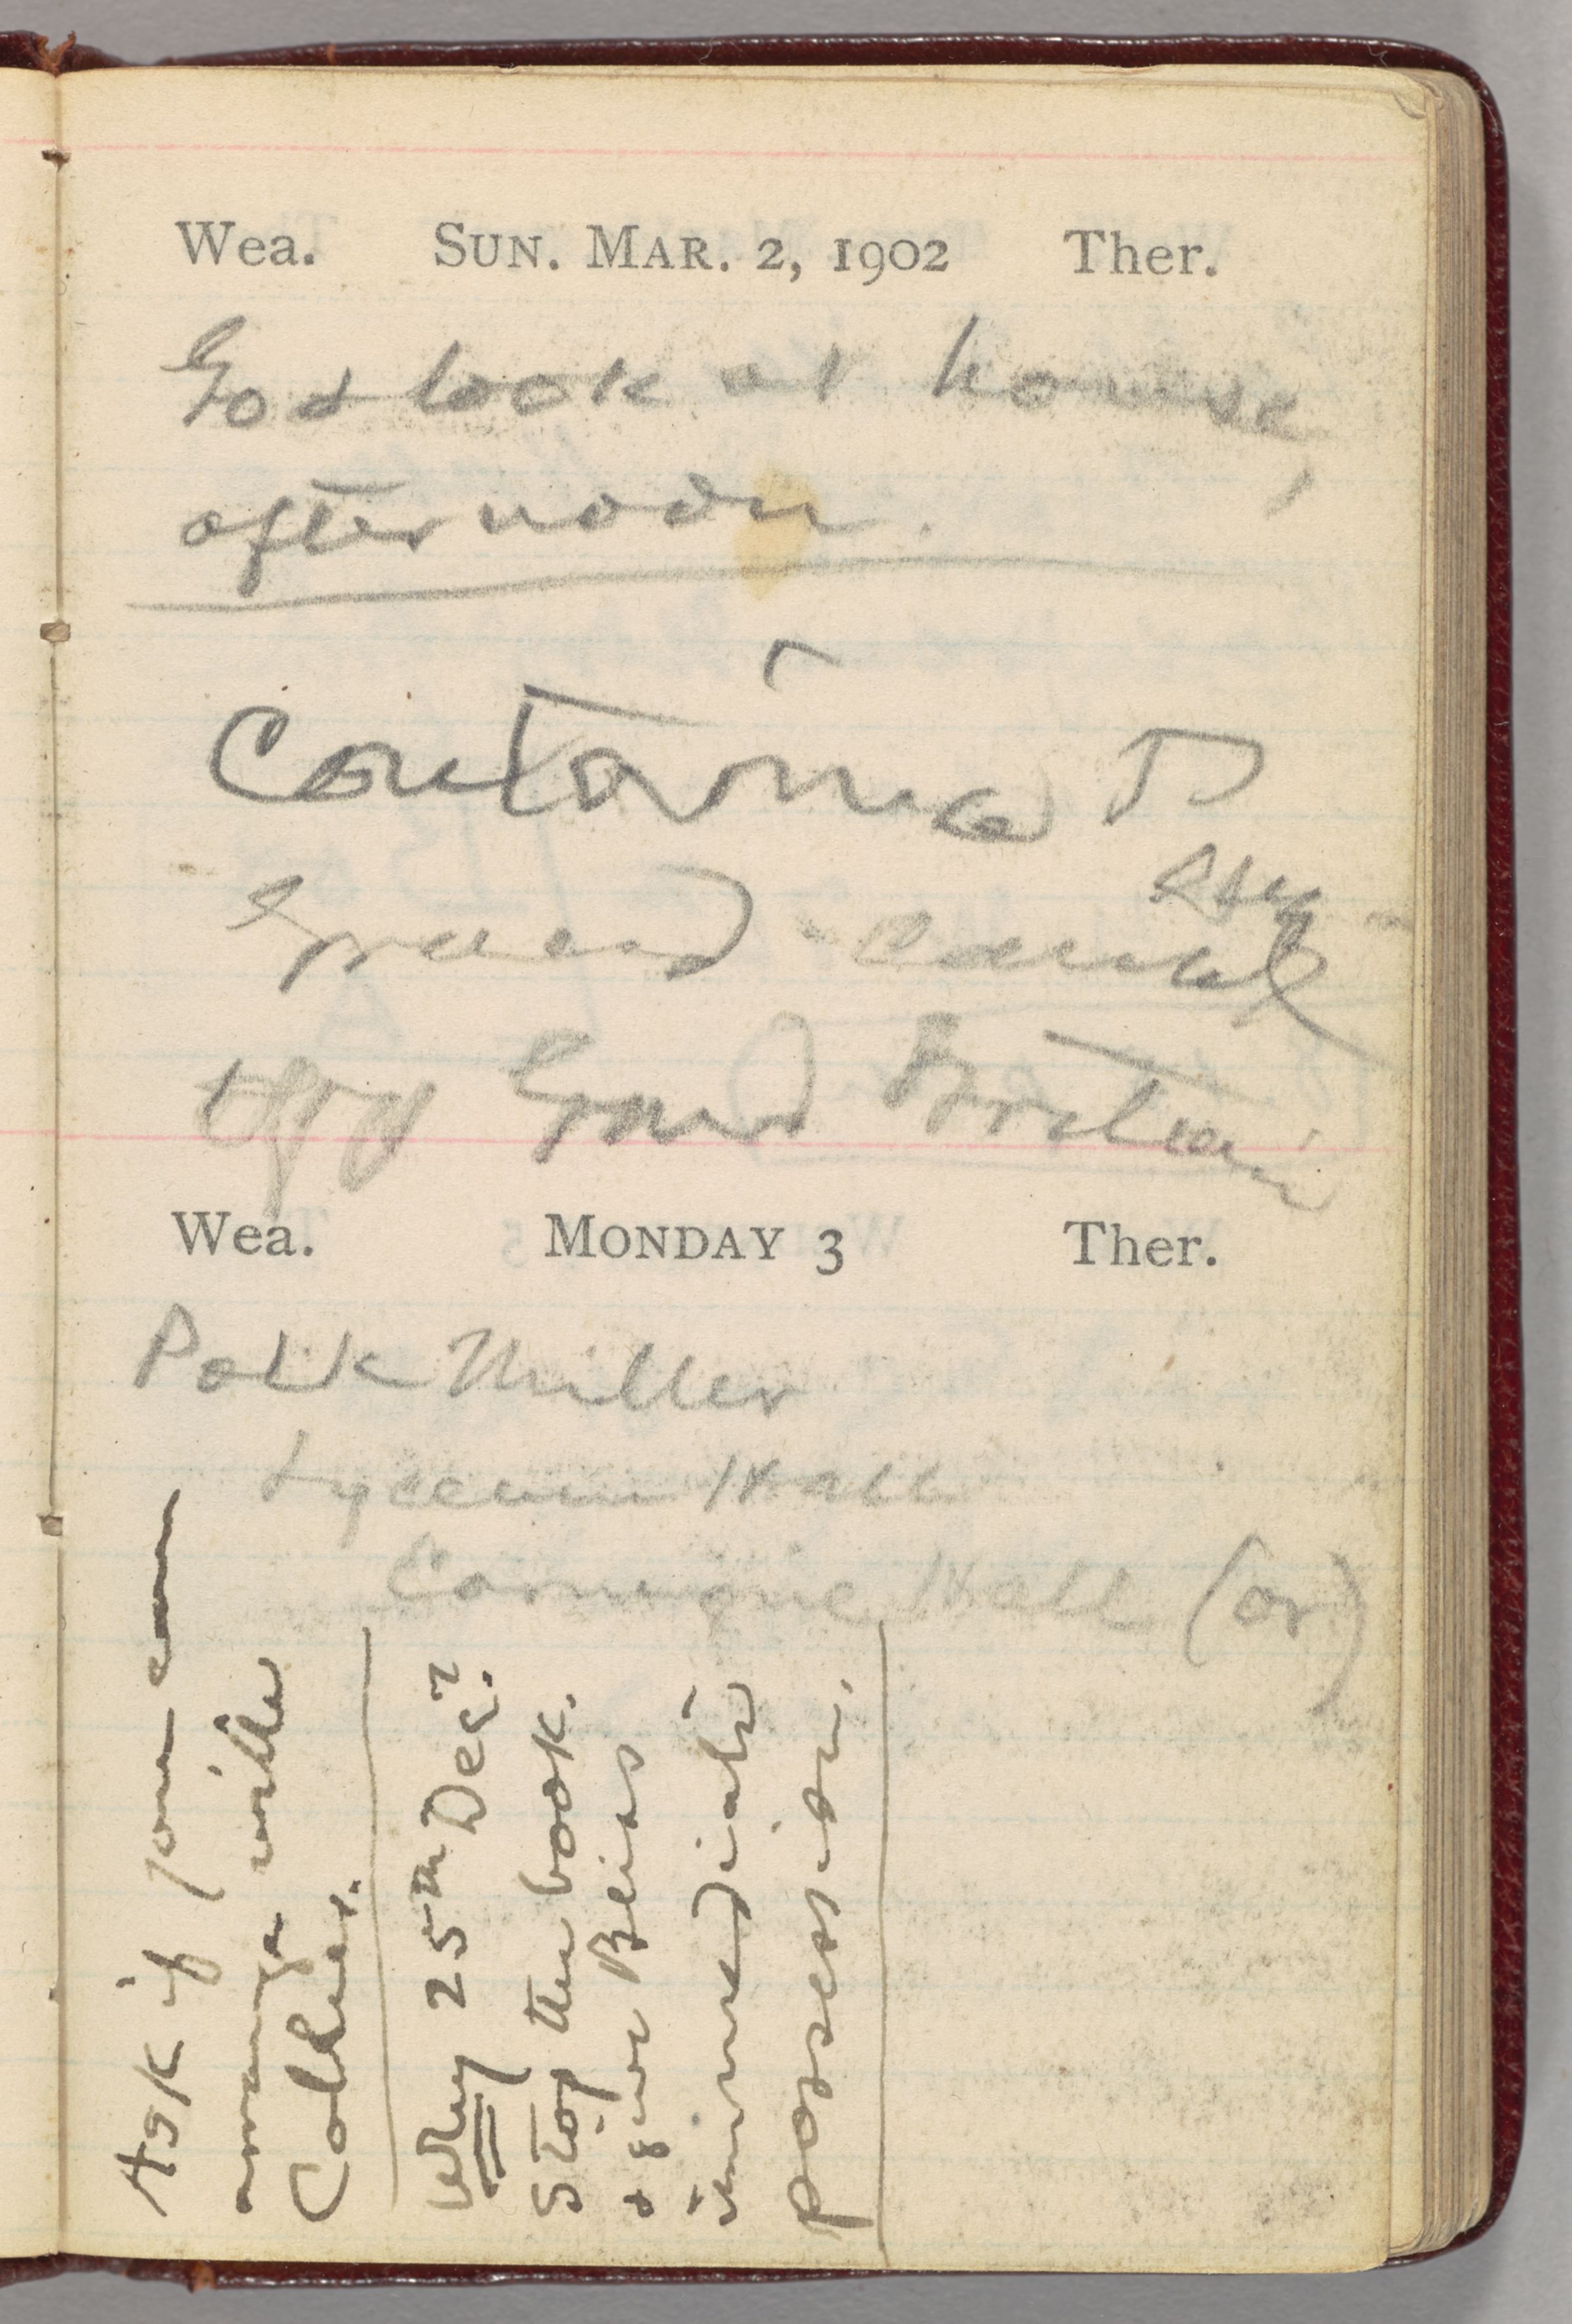 Wea. SUN. MAR. 2, 1902 Ther.
Go & look at house,
afternoon.
Contarina
Grand Canal
opp Grand Britain
Wea. MONDAY 3 Ther.
Polk Miller
Lyceum Hall
Carnegie Hall (or)
Ask if you can
arrange with
Collier.
Why 25th Dec?
Stop the book.
& give Bliss
immediate
possession.